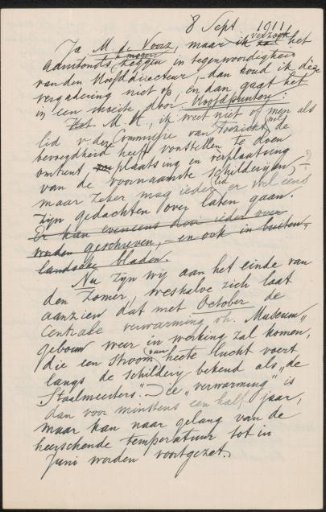 8 Sept. 1911
Ja M. de Voorz., maar ik verzoek het
in tegenwoordigheid
van den Hoofddirecteur, dan houd ik deze
vergadering niet op, en dan gaat het
in een moeite door. Hoofdpunten:
M. H., ik weet niet of men als
lid v. de Commissie van Toezicht de
bevoegdheid heeft voorstellen te doen
omtrent plaatsing en verplaatsing
van de voornaamste schilderijen;
maar zeker mag ieder er wel eens
zijn gedachten over laten gaan.
Er kan eveneens door ieder over
worden geschreven, en ook in buiten-
landsche bladen.
Nu zijn wij aan het einde van
den Zomer, weshalve zich laat
aanzien, dat met October de
centrale verwarming v/h. Museum-
gebouw weer in werking zal komen,
die een stroom van heete lucht voert
langs de schilderij bekend als „de
Staalmeesters". Die „verwarming" is
dan voor minstens een half jaar,
maar kan naar gelang van de
heerschende temperatuur tot in
Juni worden voortgezet.